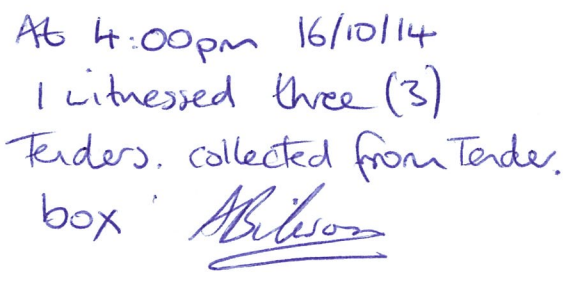 At 4:00pm 16/10/14
I witnessed three (3)
Tenders. collected from Tender.
box